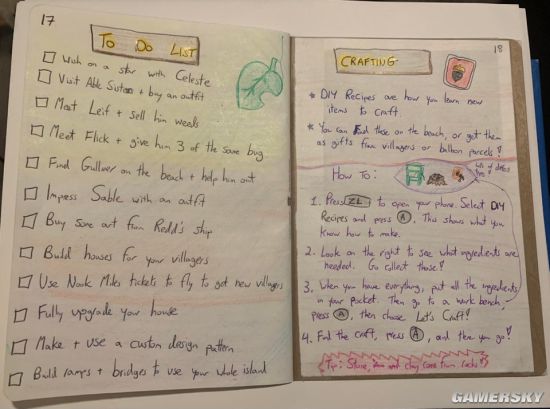 17
To Do List
Wish on a star with Celeste
Visit Able Sisters + buy an outfit
Meet Leif + sell him weeds
Meet Flick + give him 3 of the same bug
Find Gulliver on the beach + help him out
Impress Sable with an outfit
Buy some art from Redd's ship
Build houses for your villagers
Use Nook Miles tickets to fly to get new villagers
Fully upgrade your house
Make + use a custom design pattern
Build ramps + bridges to use your whole island
18
CRAFTING
* DIY Recipes are how you learn new
items to craft.
* You can find these on the beach, or get them
as gifts from villagers or balloon parcels!
How To:
lots of different
types!
1. Press ZL to open your phone. Select DIY
Recipes and press A. This shows what you
know how to make.
2. Look on the right to see what ingredients are
needed. Go collect those!
3. When you have everything, put all the ingredients
in your pocket. Then go to a work bench,
press A, then choose Let's Craft!
4. Find the craft, press A, and there you go!
Tip: Stone, and clay come from rocks!
GAMERSKY